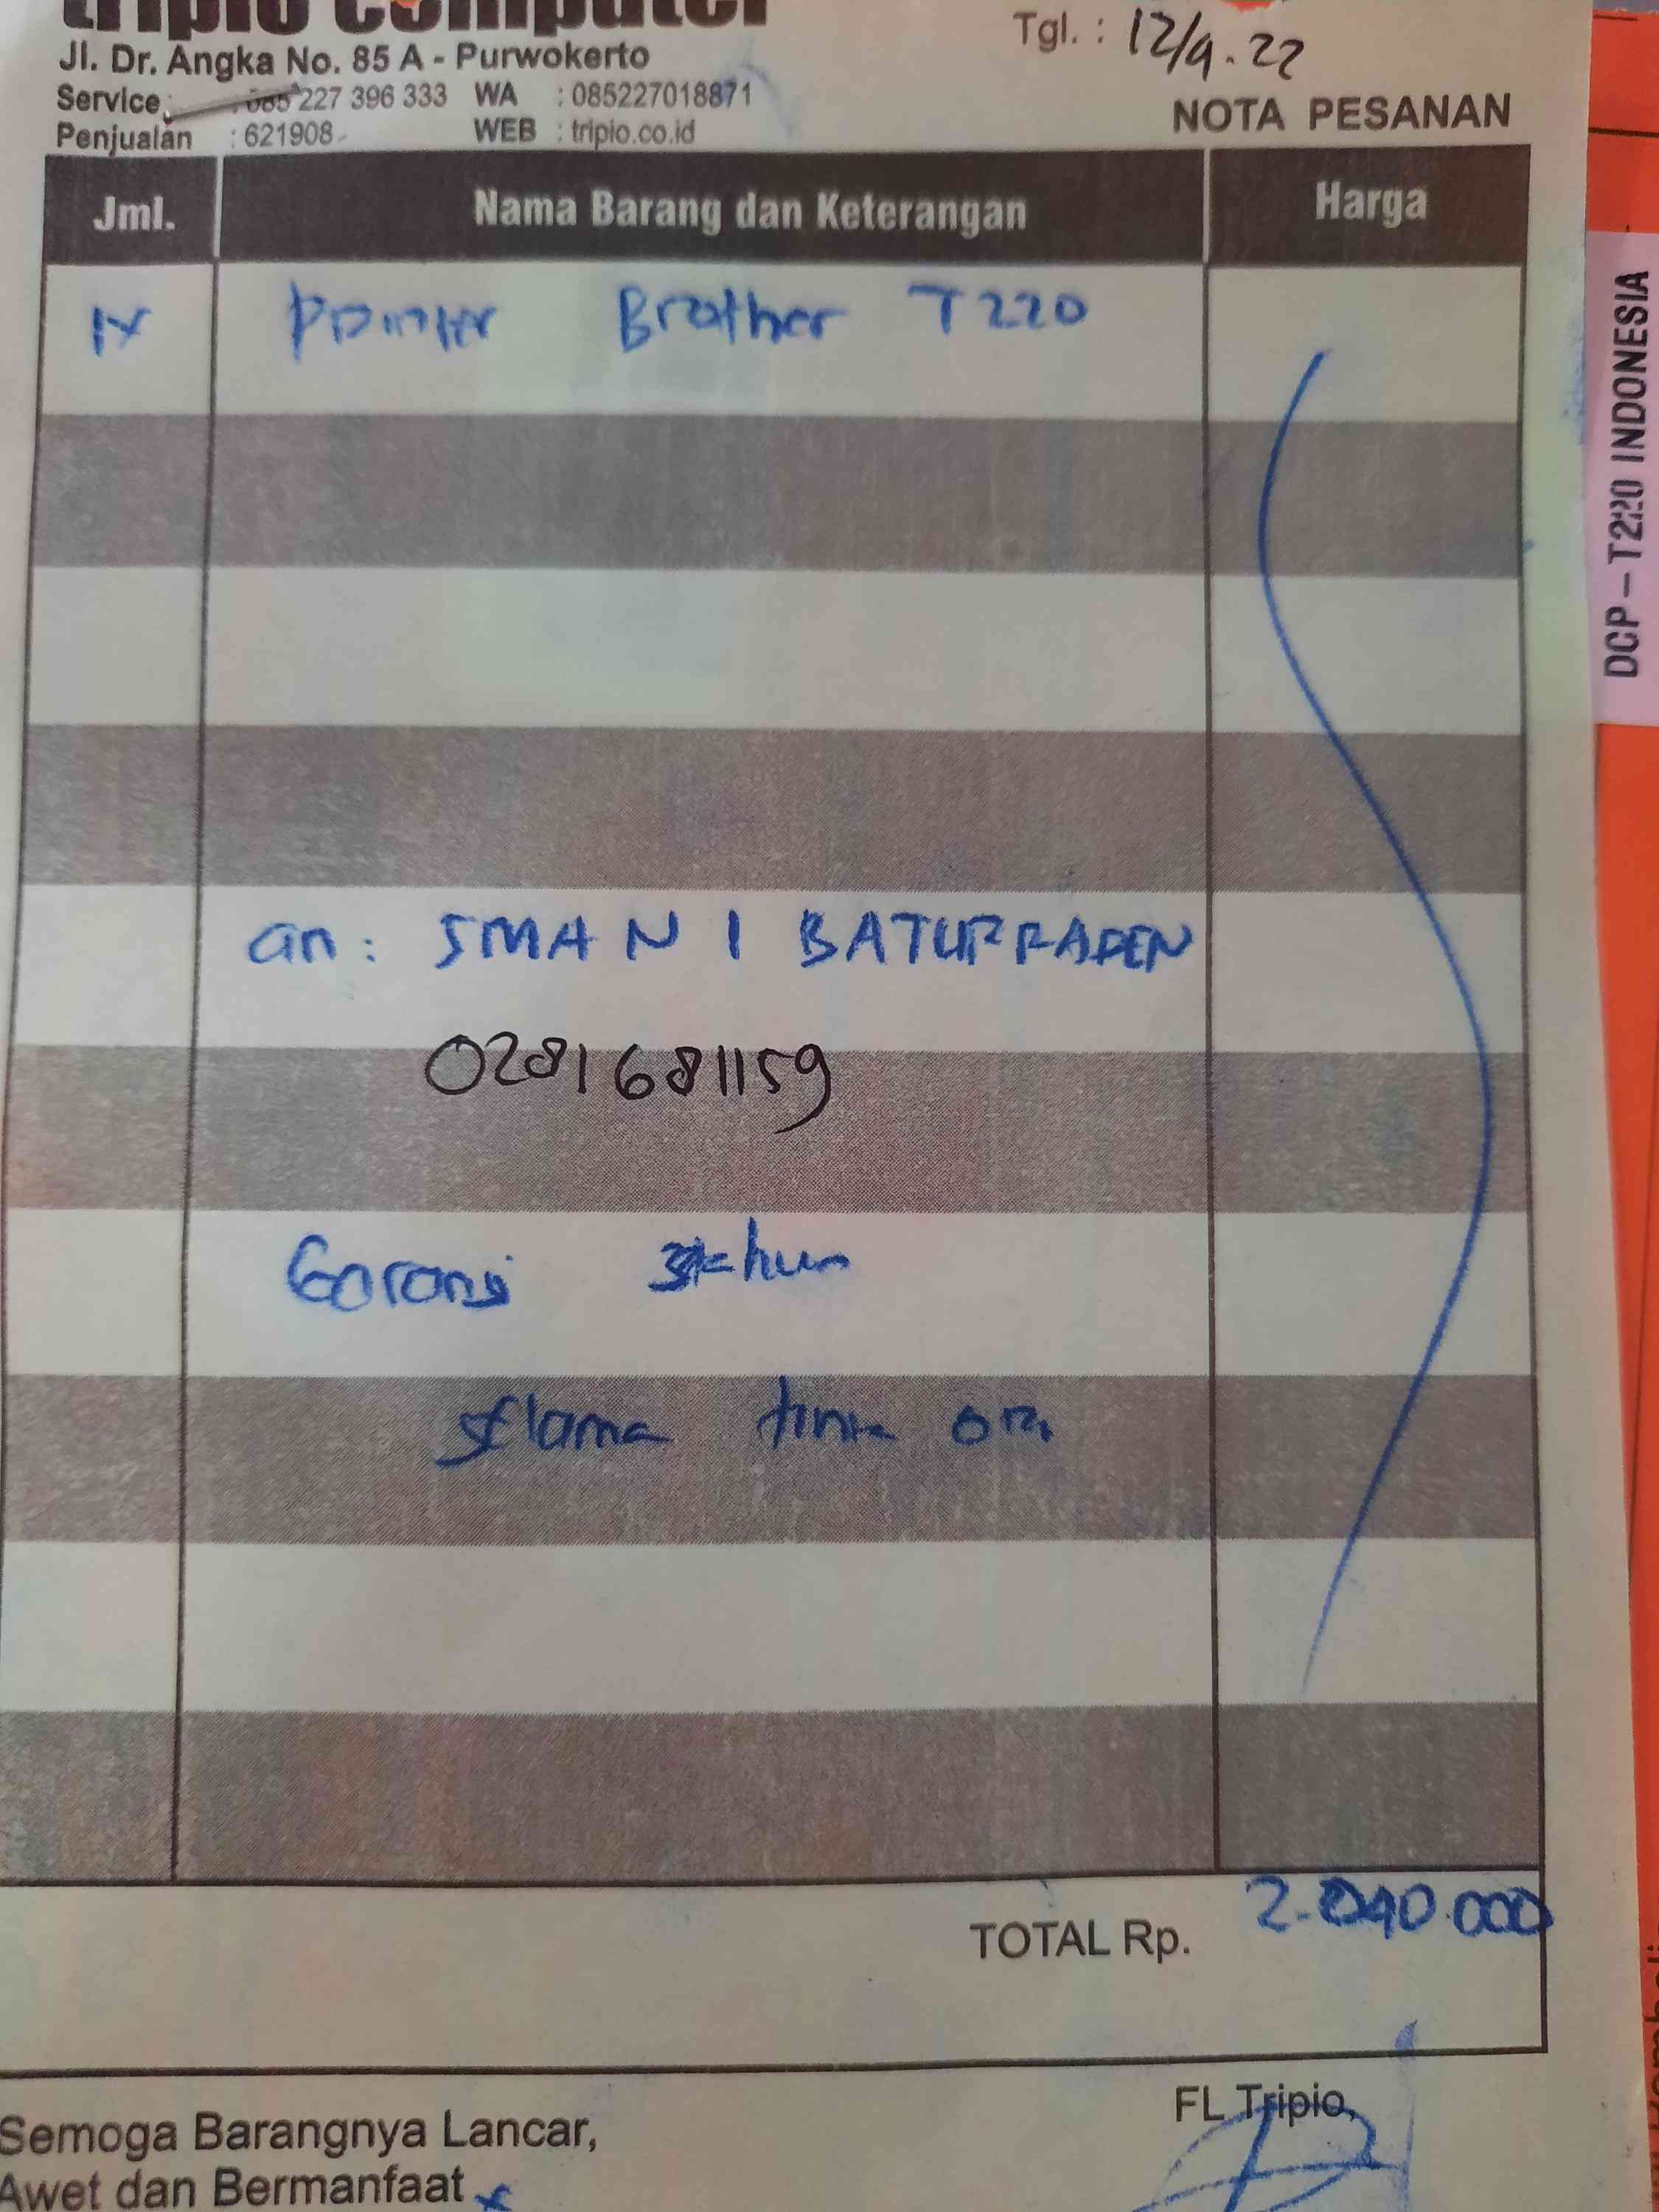 tripio computer
Jl. Dr. Angka No. 85 A - Purwokerto
Service : 085 227 396 333 WA : 085227018871
Penjualan : 621908 WEB : tripio.co.id
Tgl. : 12/9.22
NOTA PESANAN
Jml. Nama Barang dan Keterangan Harga
1x Printer Brother T220
an : SMA N 1 BATURRADEN
0281681159
Garansi 3 tahun
selama tinta ori
TOTAL Rp. 2.040.000
FL Tripio,
Semoga Barangnya Lancar,
Awet dan Bermanfaat
DCP - T220 INDONESIA